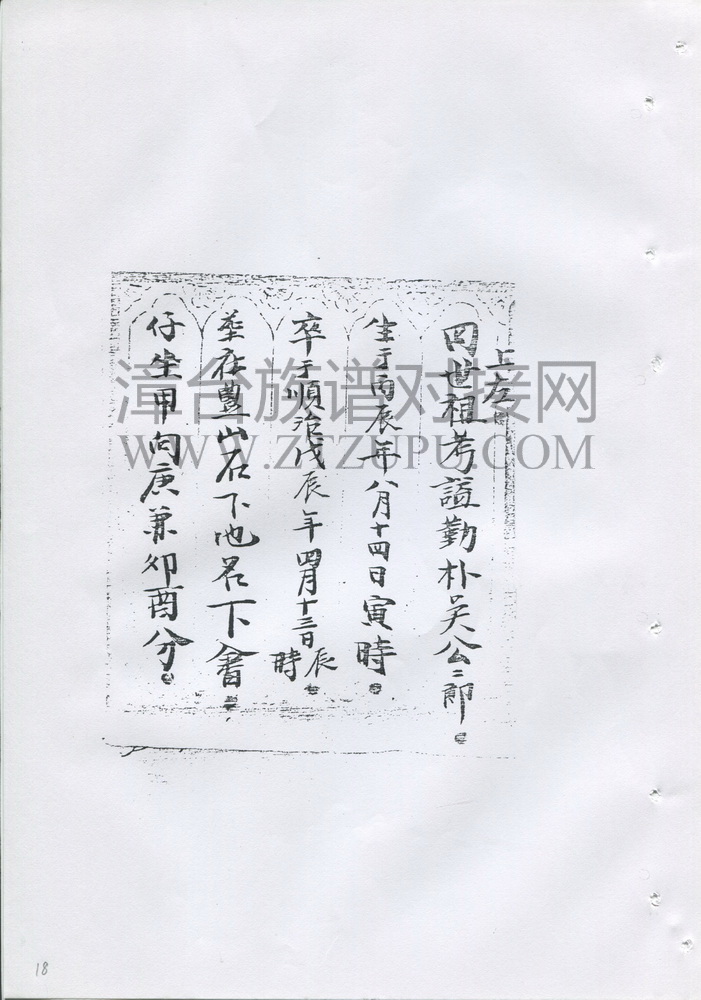 上左
四世祖考諡勤朴吴公二郎
生于丙辰年八月十四日寅時
卒于順治戊辰年四月十三日辰時
塟在豐山石下地名下會
仔坐甲向庚兼卯酉分
漳台族谱对接网
WWW.ZTZUPU.COM
18